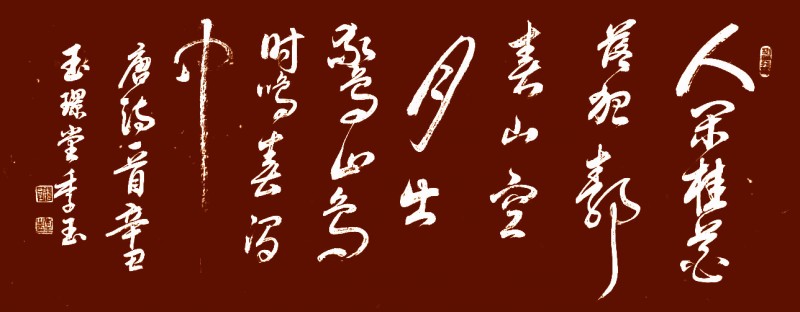 人闲桂花
落夜静
春山空
月出
惊鸟山鸟
时鸣春涧
中
唐诗一首辛丑
玉璟堂季玉